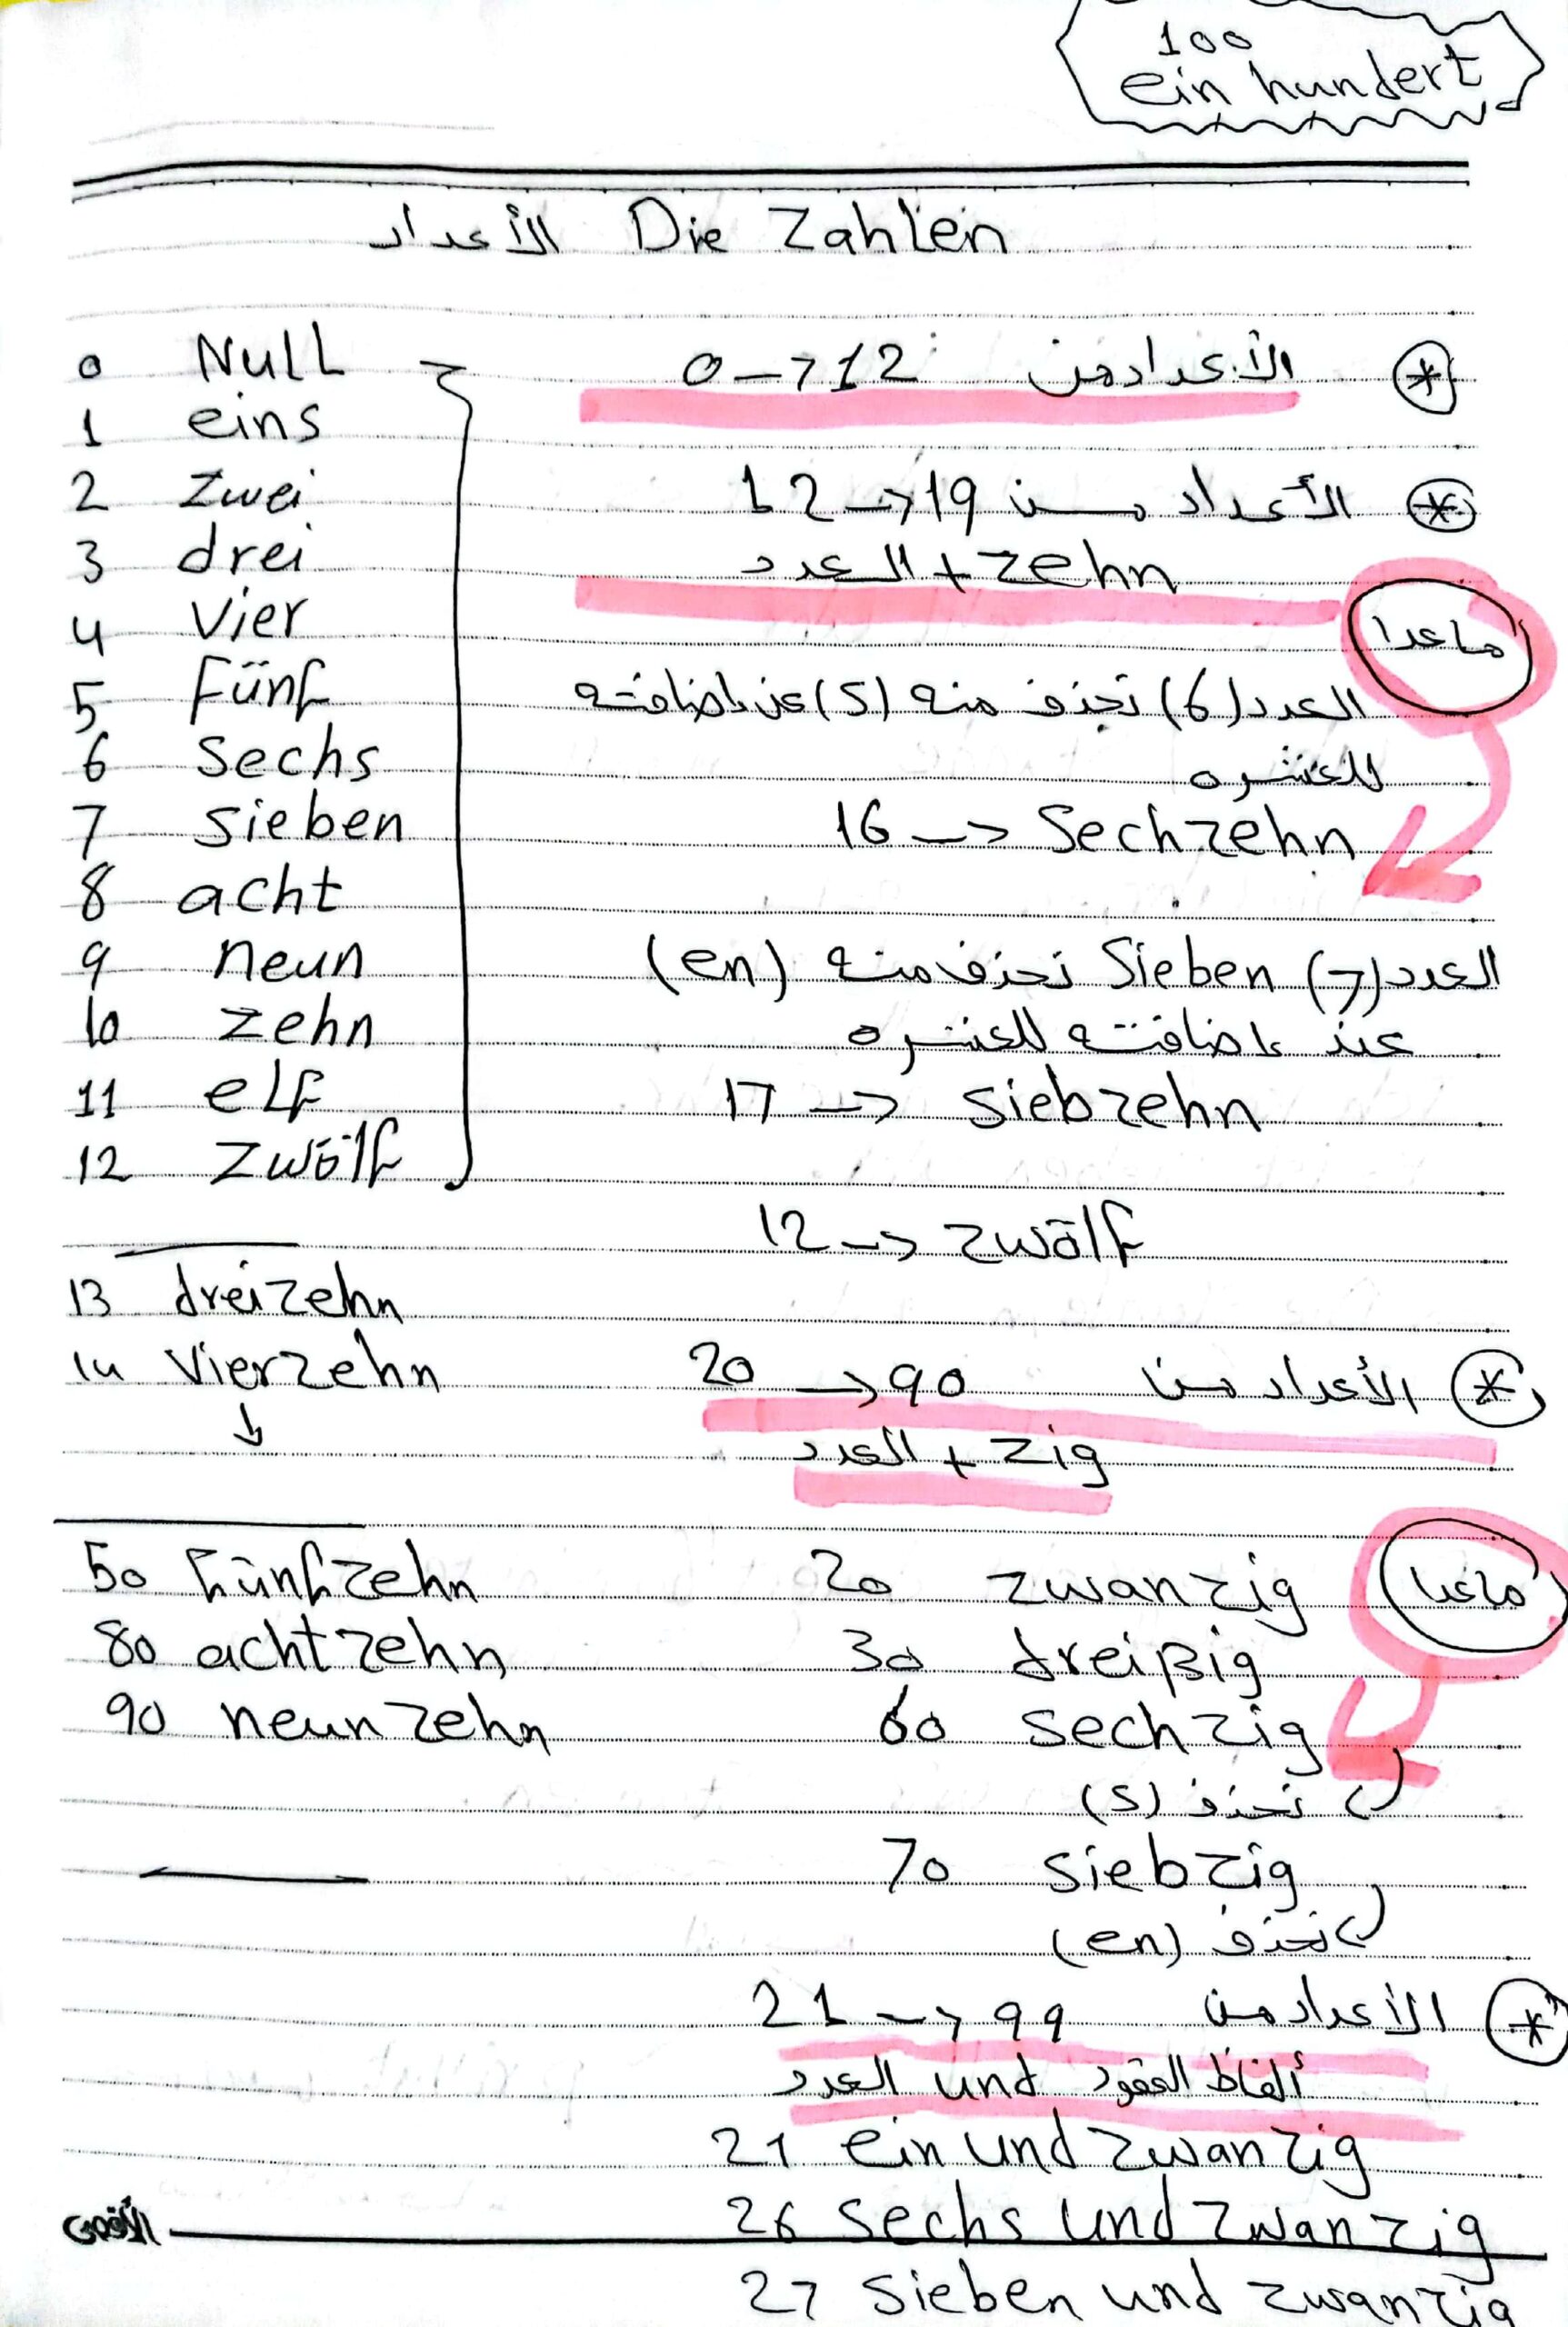 100
ein hundert
الأعداد Die Zahlen
0 Null
1 eins
2 zwei
3 drei
4 vier
5 Fünf
6 Sechs
7 sieben
8 acht
9 neun
10 zehn
11 elf
12 zwölf
13 dreizehn
14 vierzehn
↓
50 fünfzehn
80 achtzehn
90 neunzehn
* الأعداد من 0 -> 12
* الأعداد من 12 -> 19
العدد + zehn
ماعدا
العدد (6) تحذف منه (s) عن إضافته
للعشره
16 -> Sechzehn
العدد (7) Sieben تحذف منه (en)
عند إضافته للعشره
17 -> siebzehn
12 -> zwölf
* الأعداد من 20 -> 90
العدد + zig
ماعدا
20 zwanzig
30 dreißig
60 sechzig
تحذف (s)
70 siebzig
تحذف (en)
* الأعداد من 21 -> 99
ألفاظ العقود und العدد
21 ein und zwanzig
26 sechs und zwanzig
27 sieben und zwanzig
الأقصى